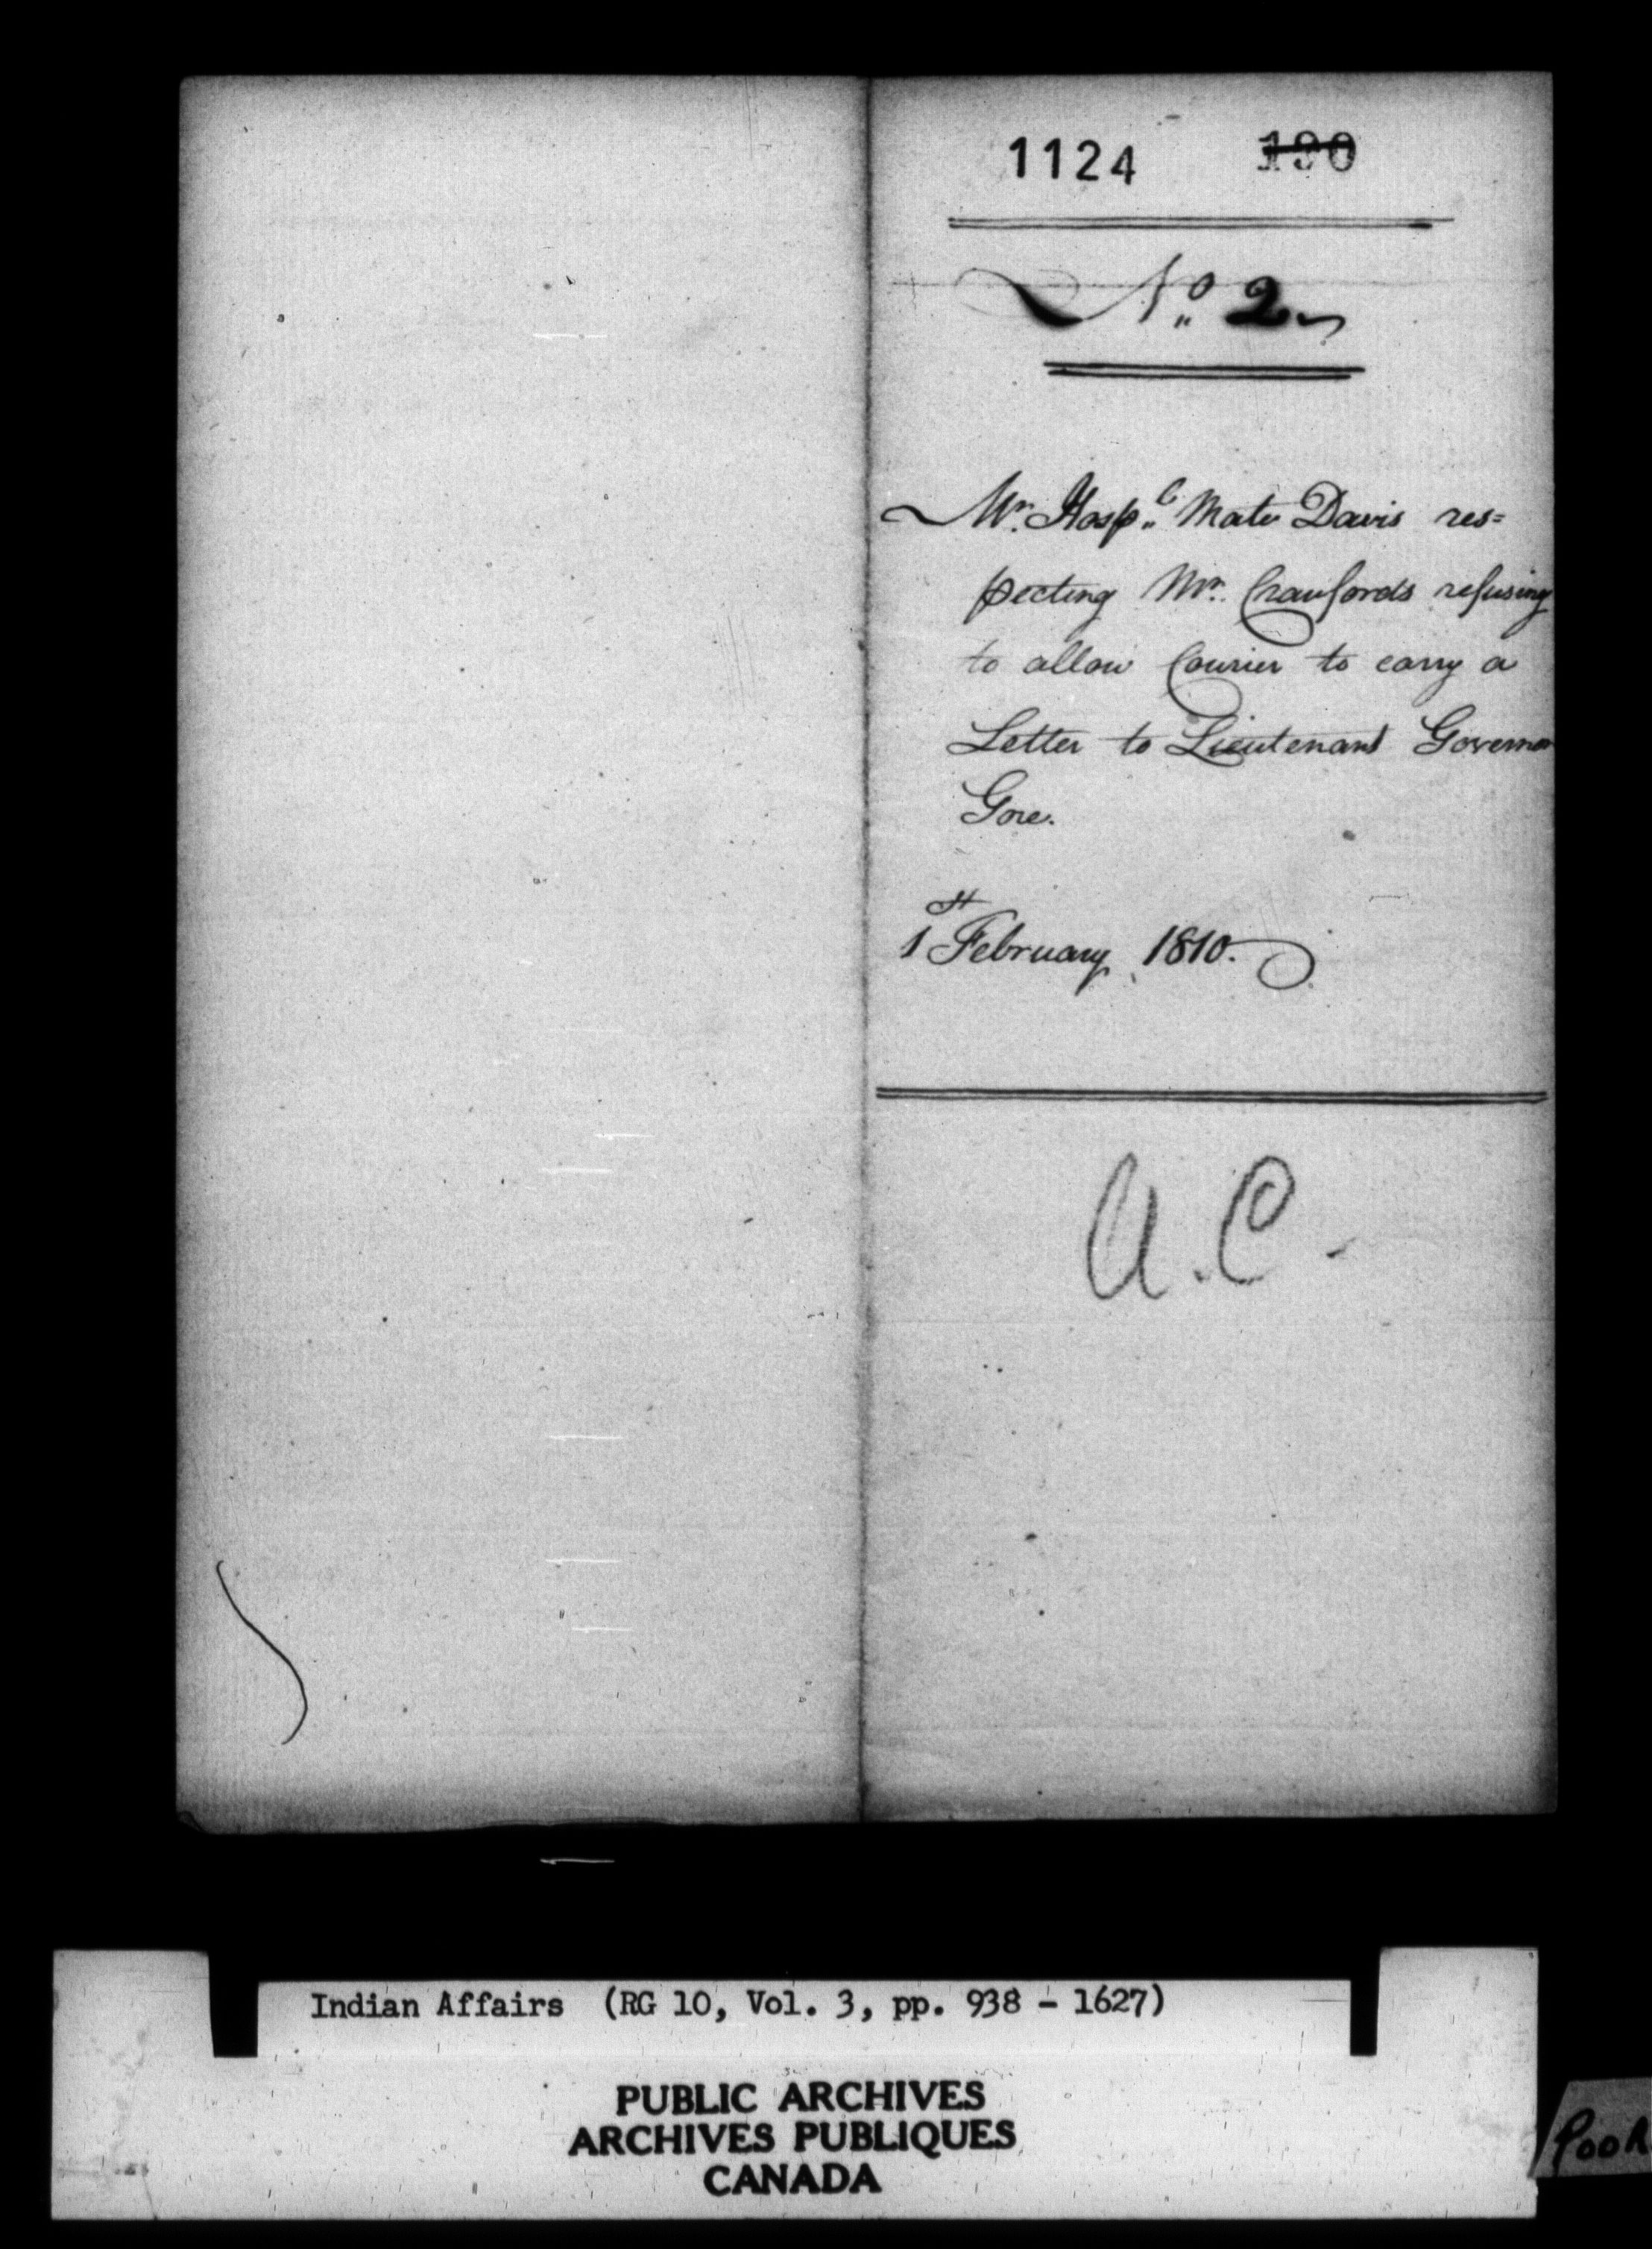 1124 190
No. 2.
Mr. Hosp.l Mate Davis res=
pecting Mr. Craufords refusing
to allow Courier to carry a
Letter to Lieutenant Governor
Gore.
1st February 1810.
U.C.
Indian Affairs (RG 10, Vol. 3, pp. 938 - 1627)
PUBLIC ARCHIVES
ARCHIVES PUBLIQUES
CANADA